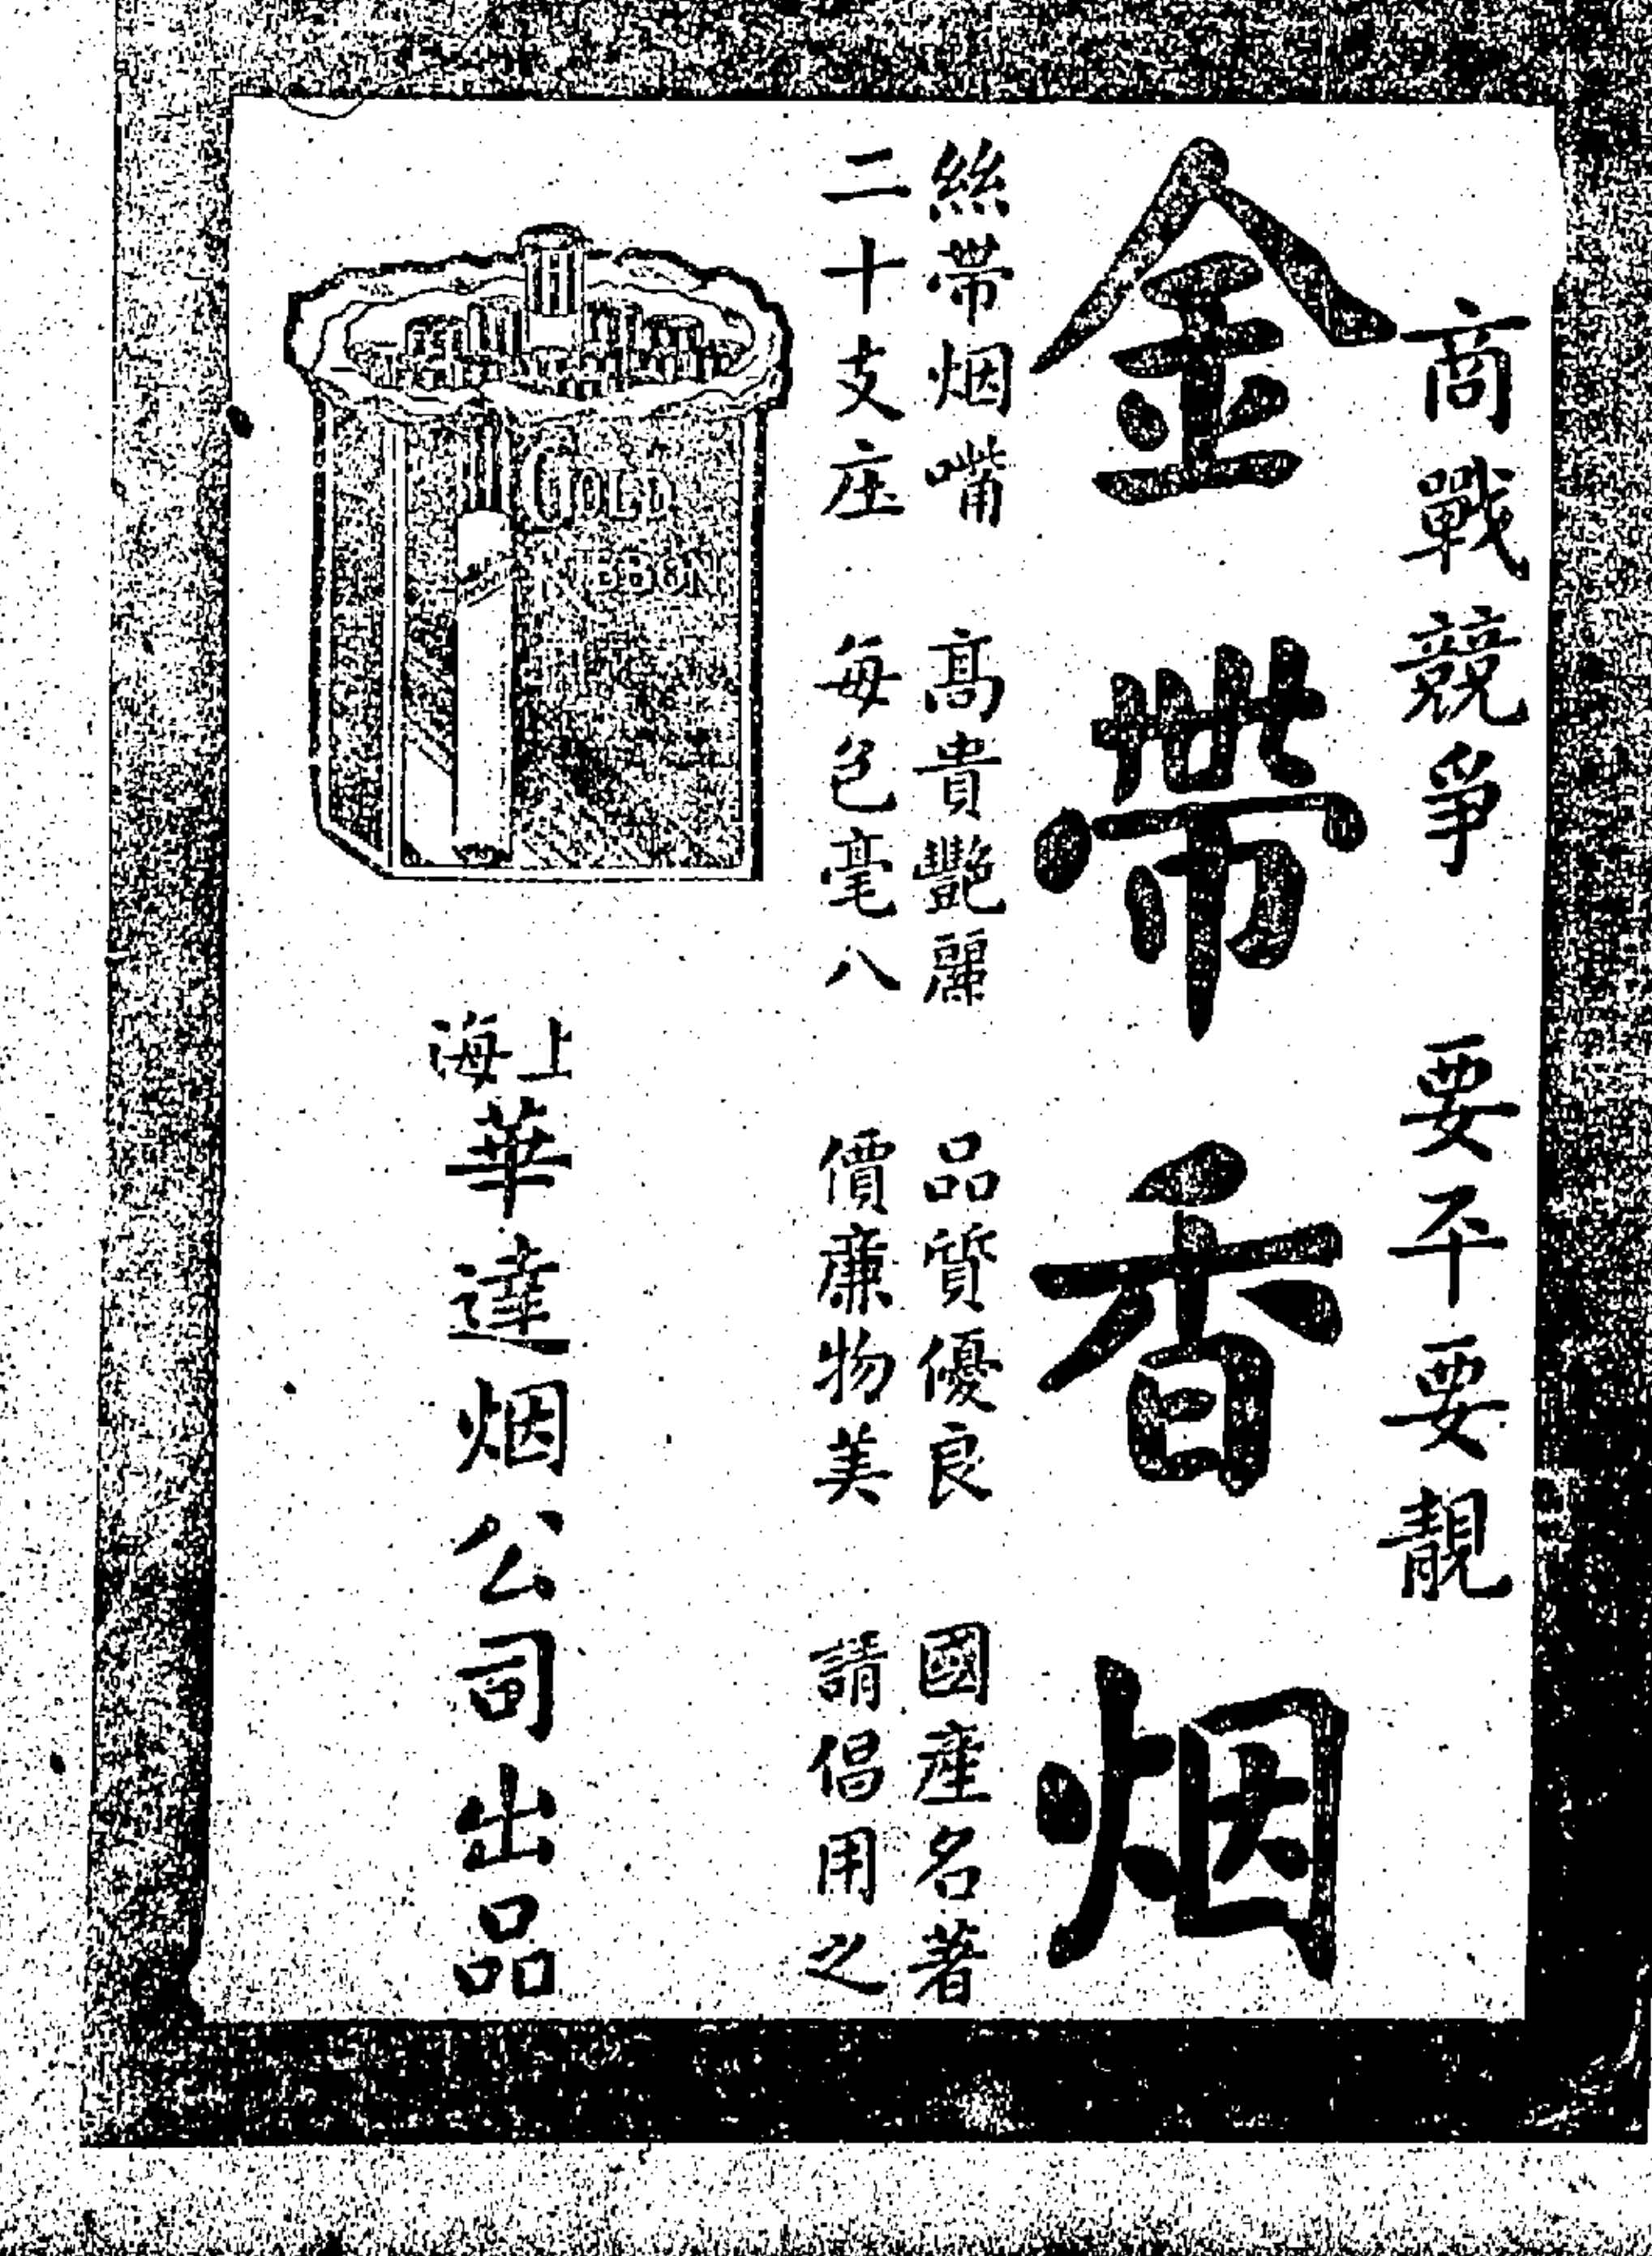 商戰競爭 要平要靚
金帶香烟
絲帶烟嘴 高貴艷麗 品質優良 國產名著
二十支庄 每包毫八 價廉物美 請倡用之
GOLD
RIBBON
上海華達烟公司出品